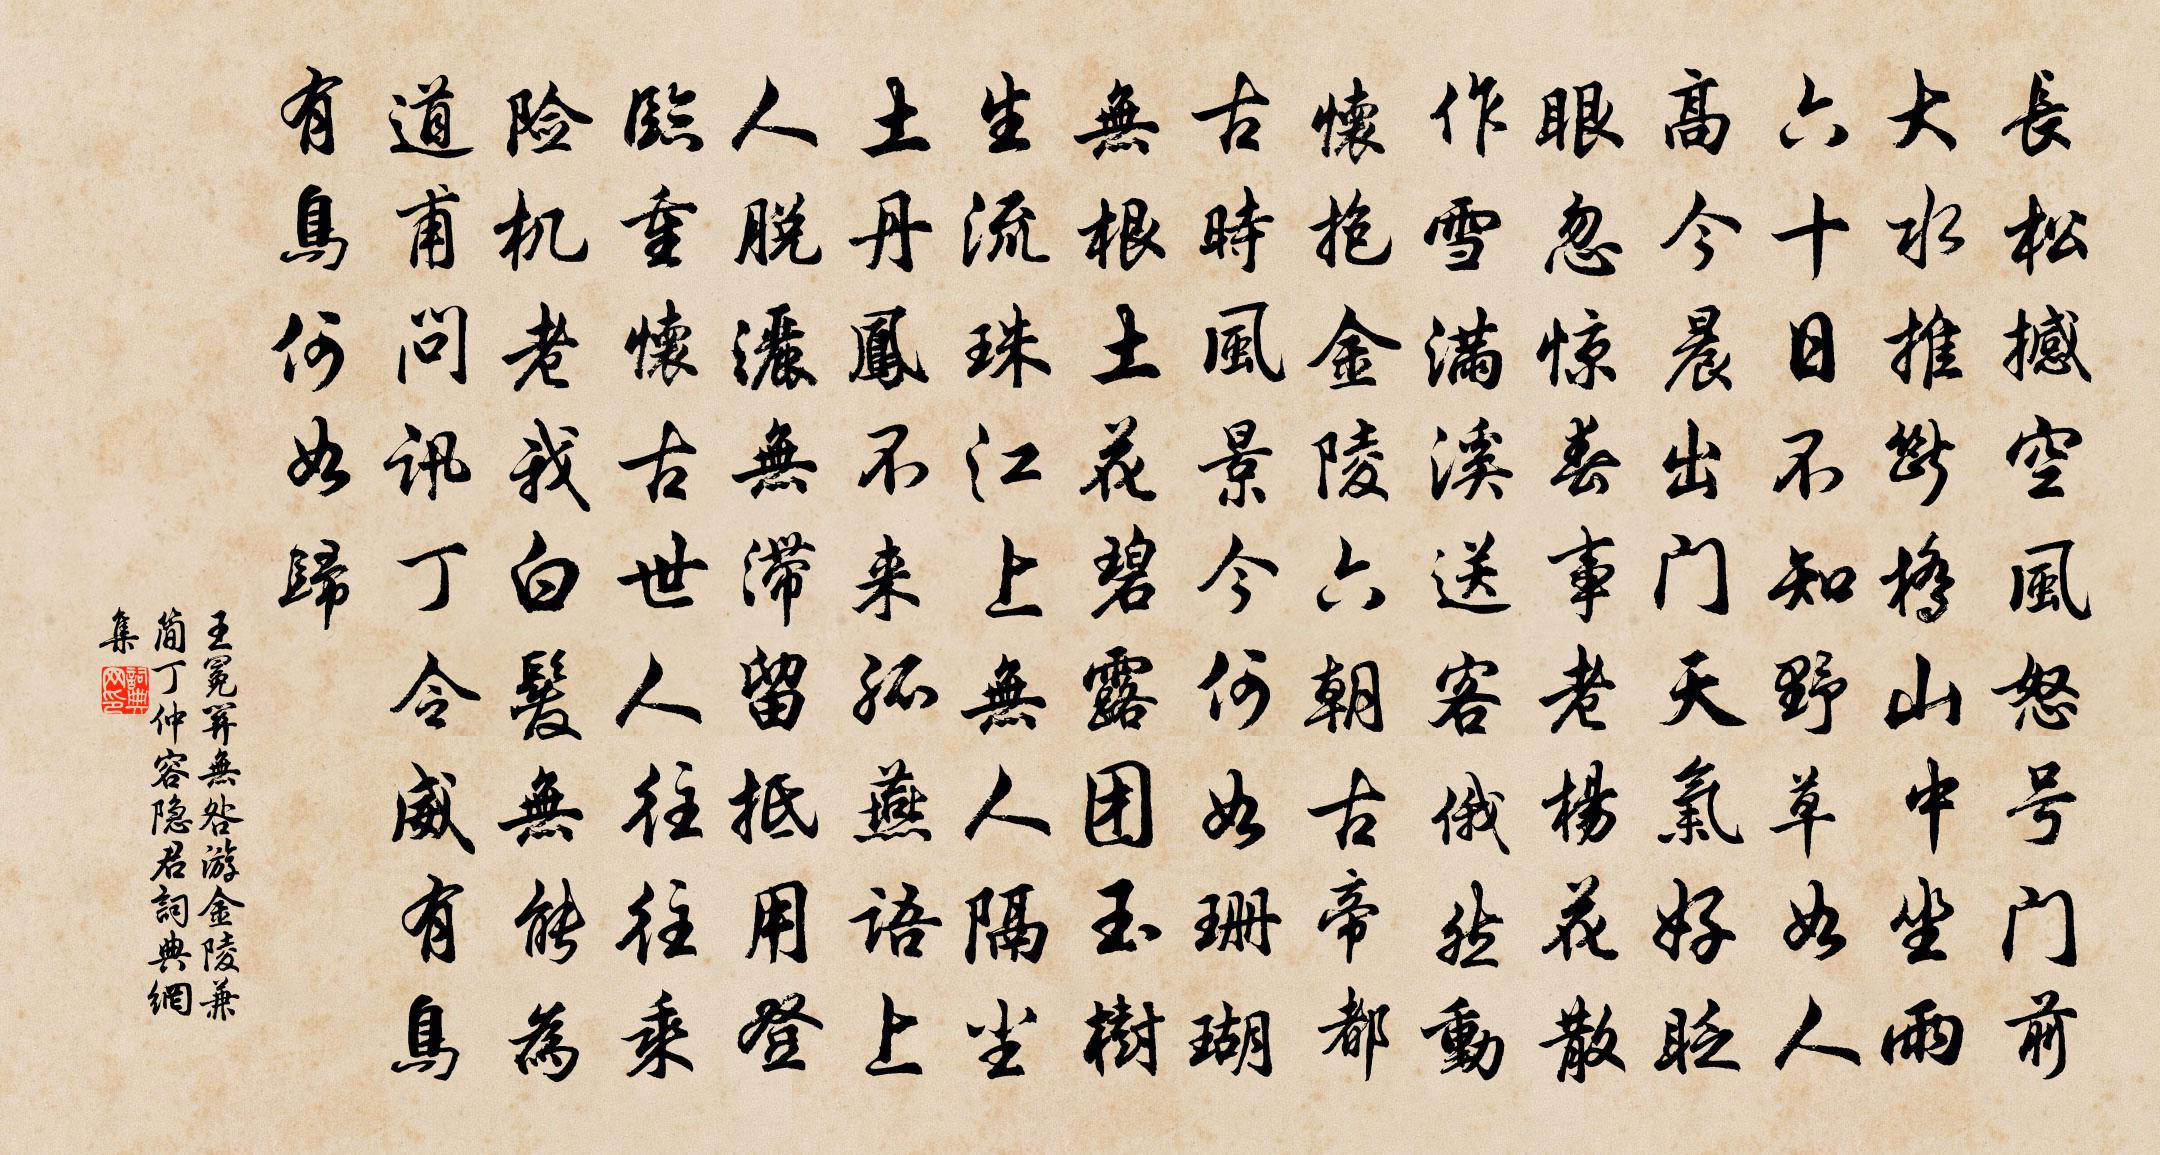 長松撼空風怒号门前
大水推斷橋山中坐雨
六十日不知野草如人
高今晨出门天氣好眨
眼忽惊春事老楊花散
作雪满溪送客俄然動
懐抱金陵六朝古帝都
古時風景今何如珊瑚
無根土花碧露团玉樹
生流珠江上無人隔尘
土丹鳳不来孤燕語上
人脱灑無滞留抵用登
臨重懐古世人往往乘
险机老我白髪無能為
道甫问讯丁令威有鳥
有鳥何如歸
王冕筓無咎游金陵兼
简丁仲容隐君詞典網
集
詞典网印